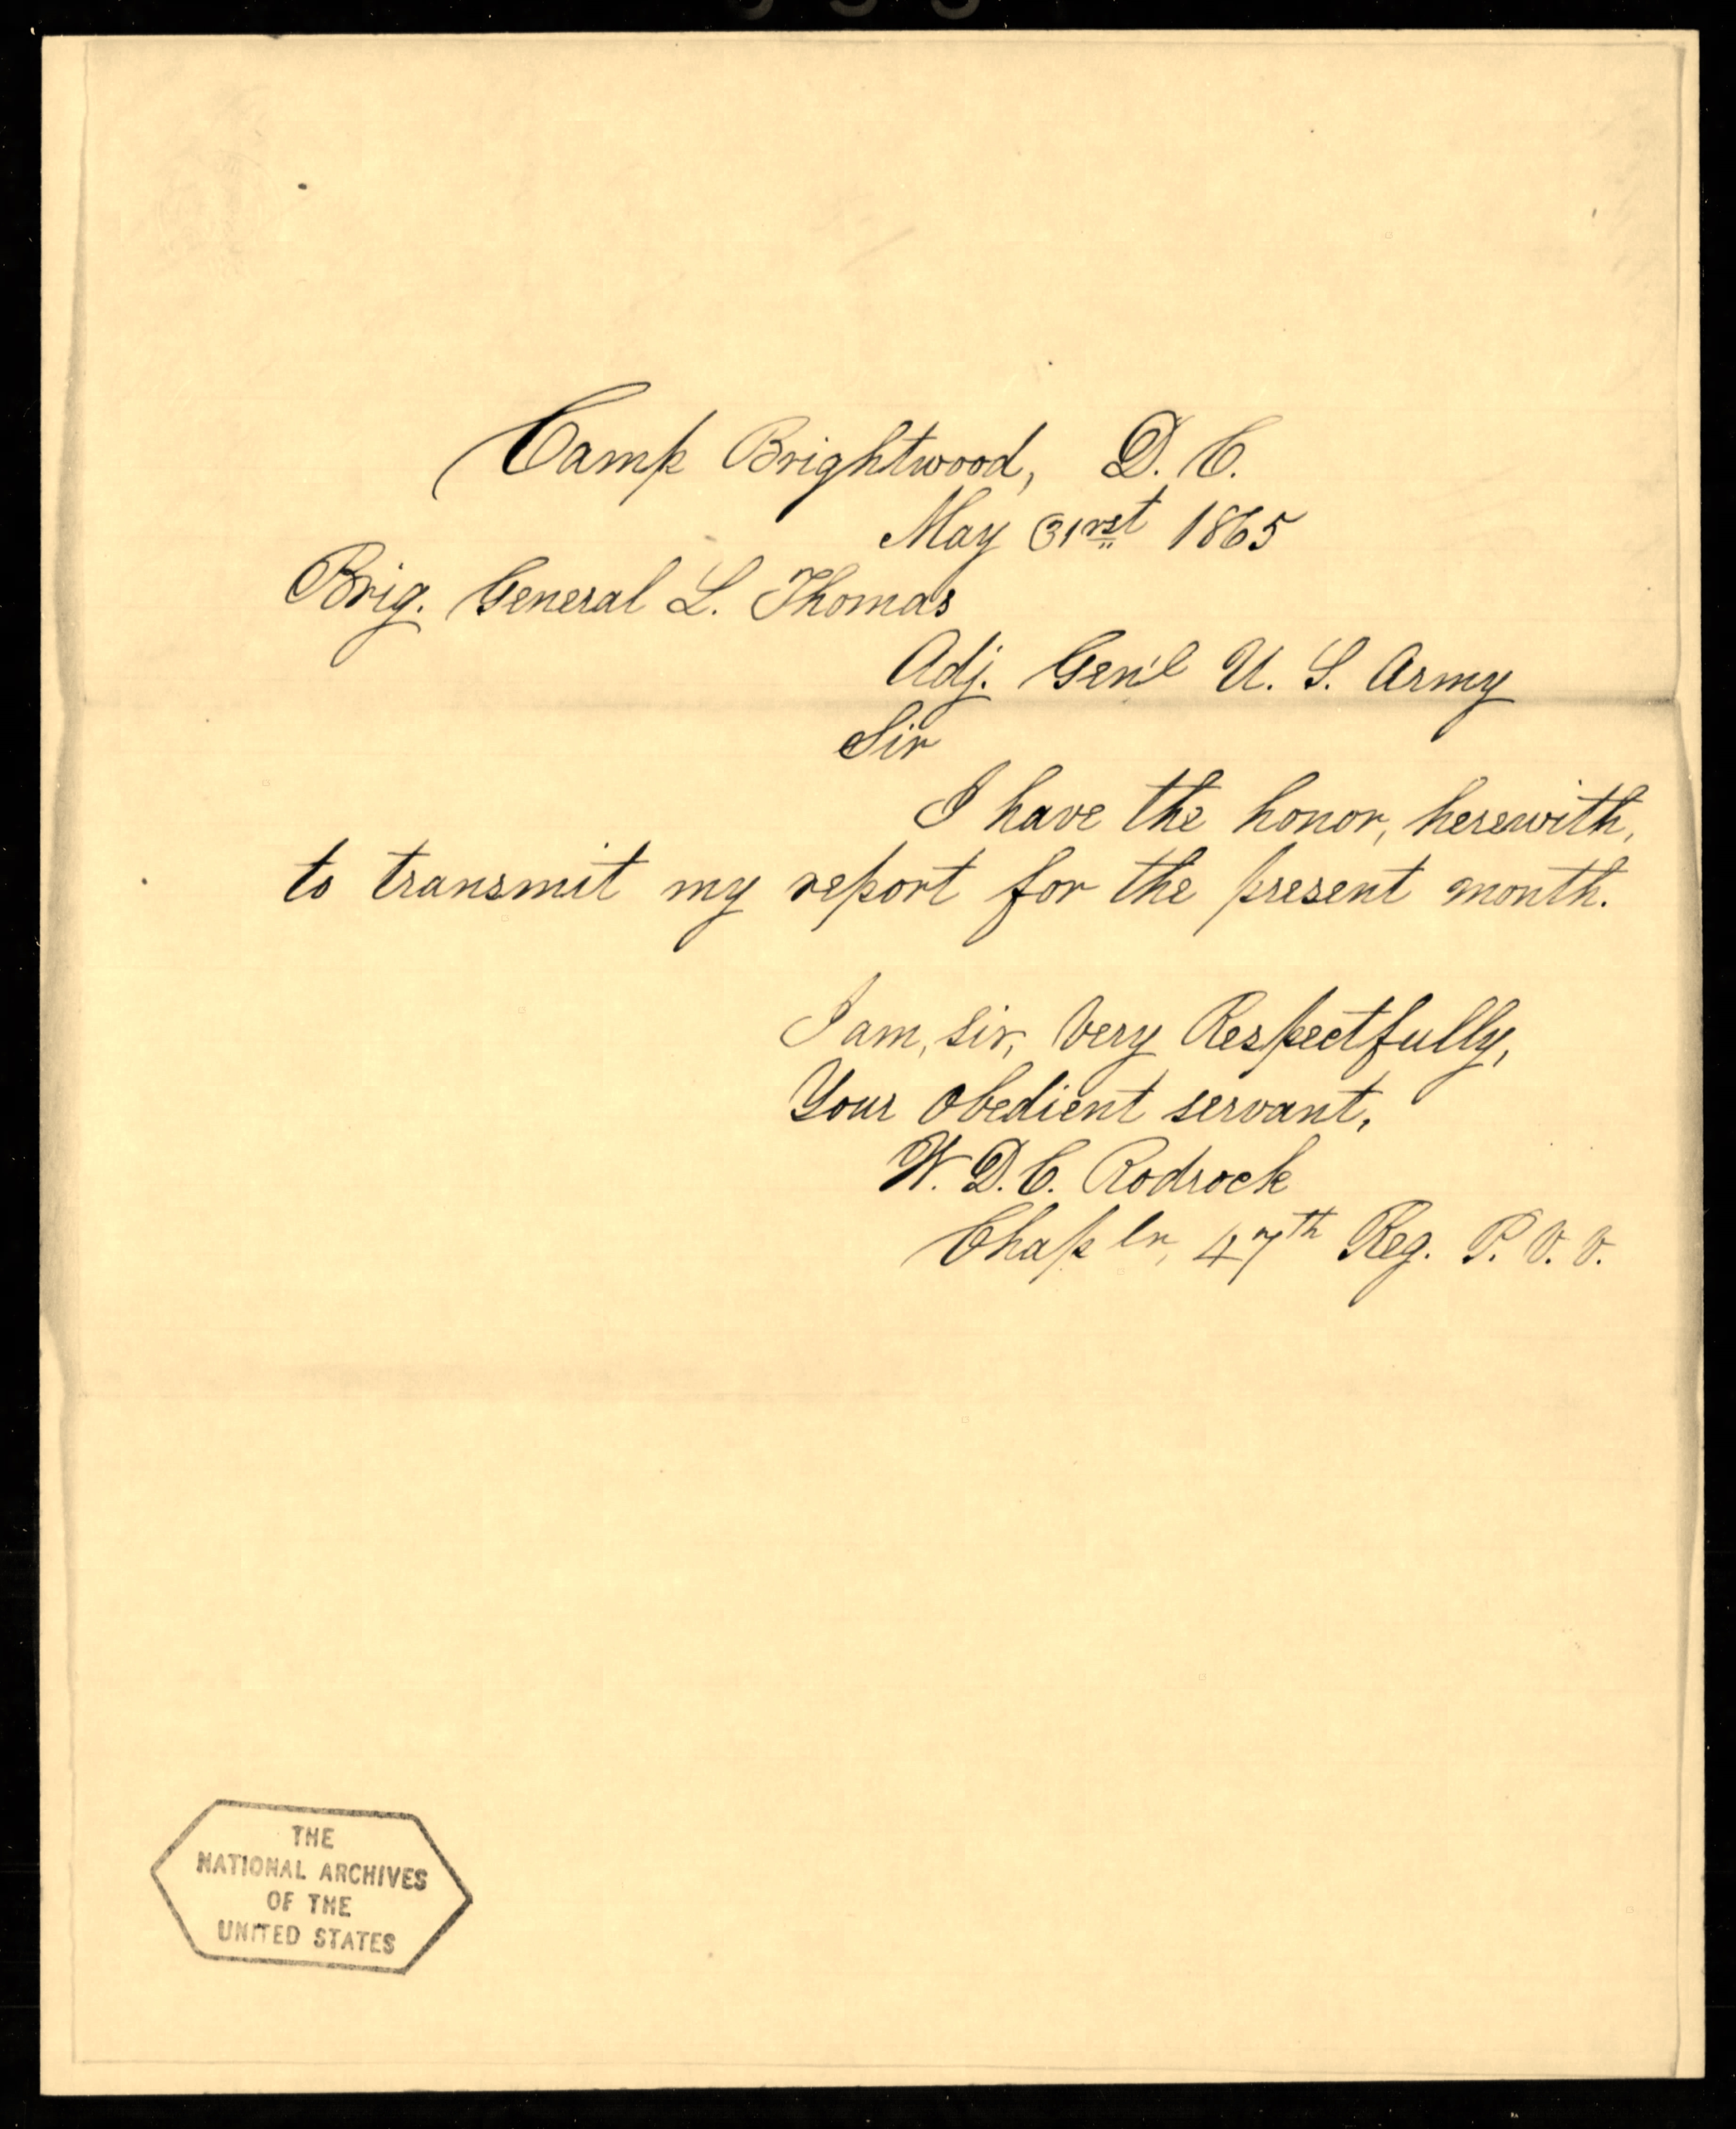 Camp Brightwood, D. C.
May 31rst 1865
Brig. General L. Thomas
Adj. Gen'l U. S. Army
Sir
I have the honor, herewith,
to transmit my report for the present month.
I am, sir, Very Respectfully,
Your obedient servant,
W. D. C. Rodrock
Chap ln, 47th Reg. P. V. V.
THE
NATIONAL ARCHIVES
OF THE
UNITED STATES